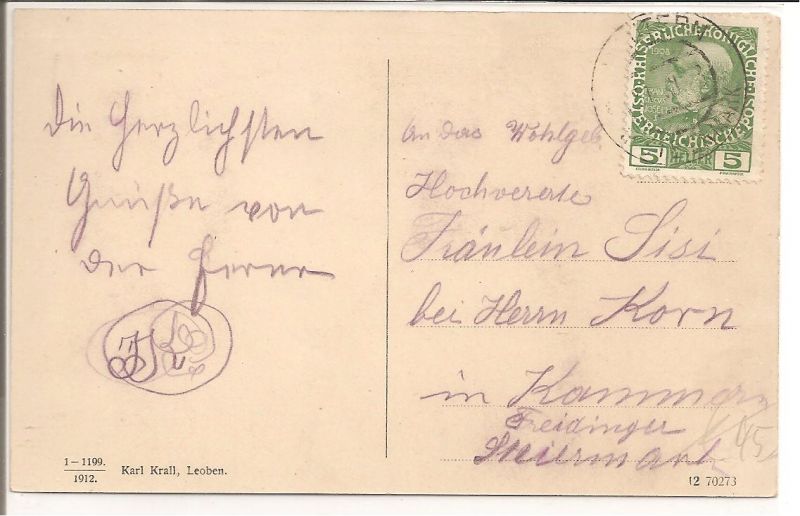 die Herzlichsten
Grüße von
der Ferne
JK
1–1199.
1912.
Karl Krall, Leoben.
An das Wohlgeb
Hochvererte
Fräulein Sisi
bei Herrn Korn
in Kammern
Freidinger
Steiermark
45
12 70273
KAISERLICHE KÖNIGLICHE
ÖSTERREICHISCHE POST
1908
5 HELLER 5